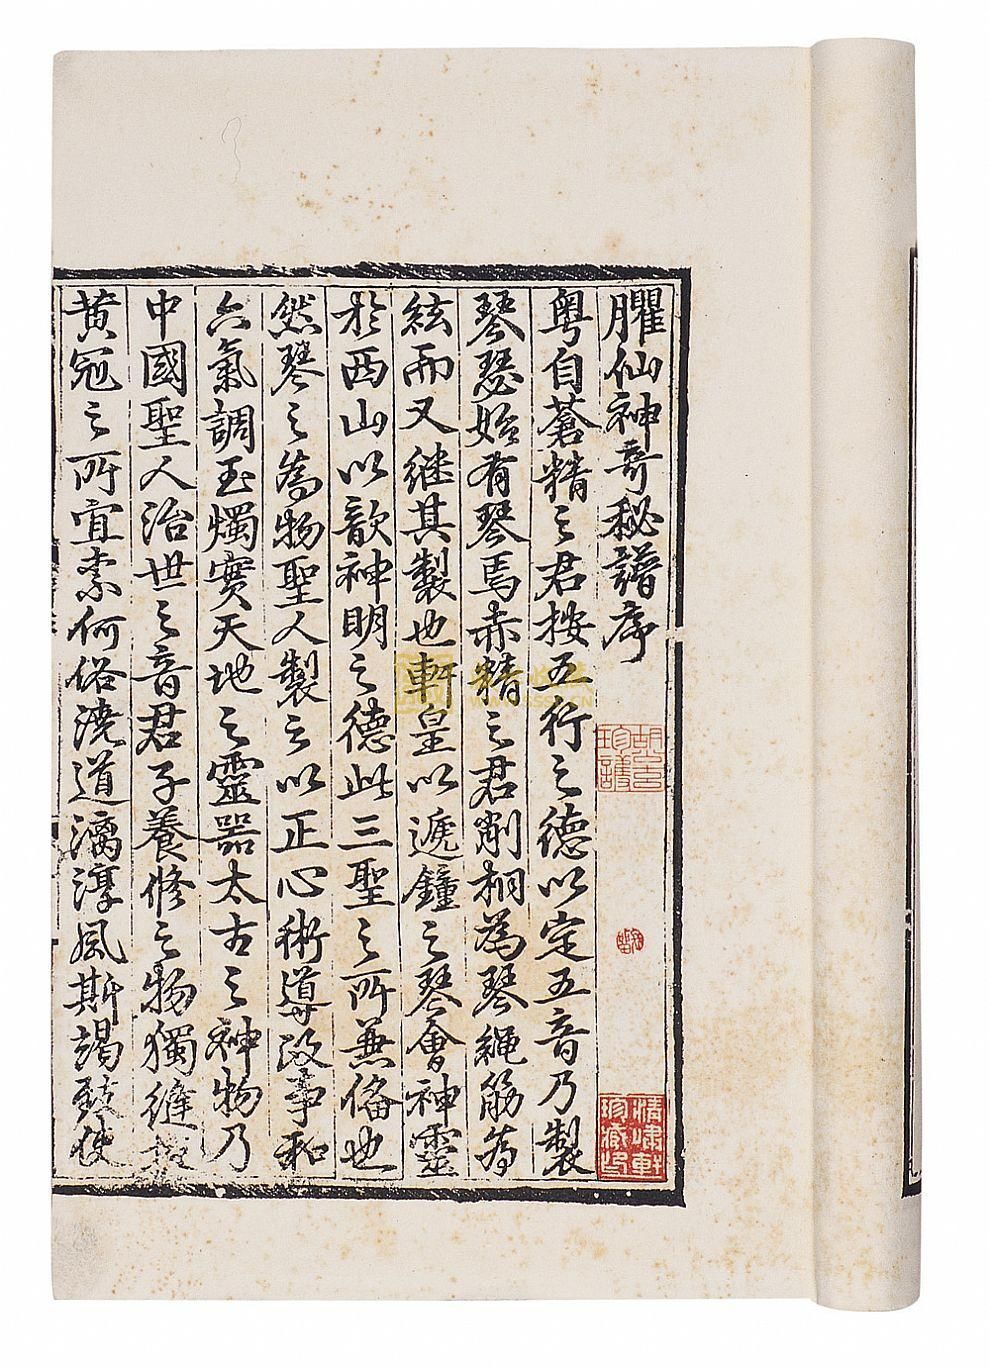 臞仙神奇秘譜序
粤自蒼精之君按五行之德以定五音乃製
琴瑟始有琴焉赤精之君削桐為琴繩筋為
絃而又継其製也軒皇以遞鐘之琴會神靈
於西山以歆神明之德此三聖之所兼俻也
然琴之為物聖人製之以正心術導政事和
六氣調玉燭實天地之靈噐太古之神物乃
中國聖人治世之音君子養修之物獨縫掖
黄冠之所宜柰何俗澆道漓淳風斯竭致使
清嘯軒
珍藏印